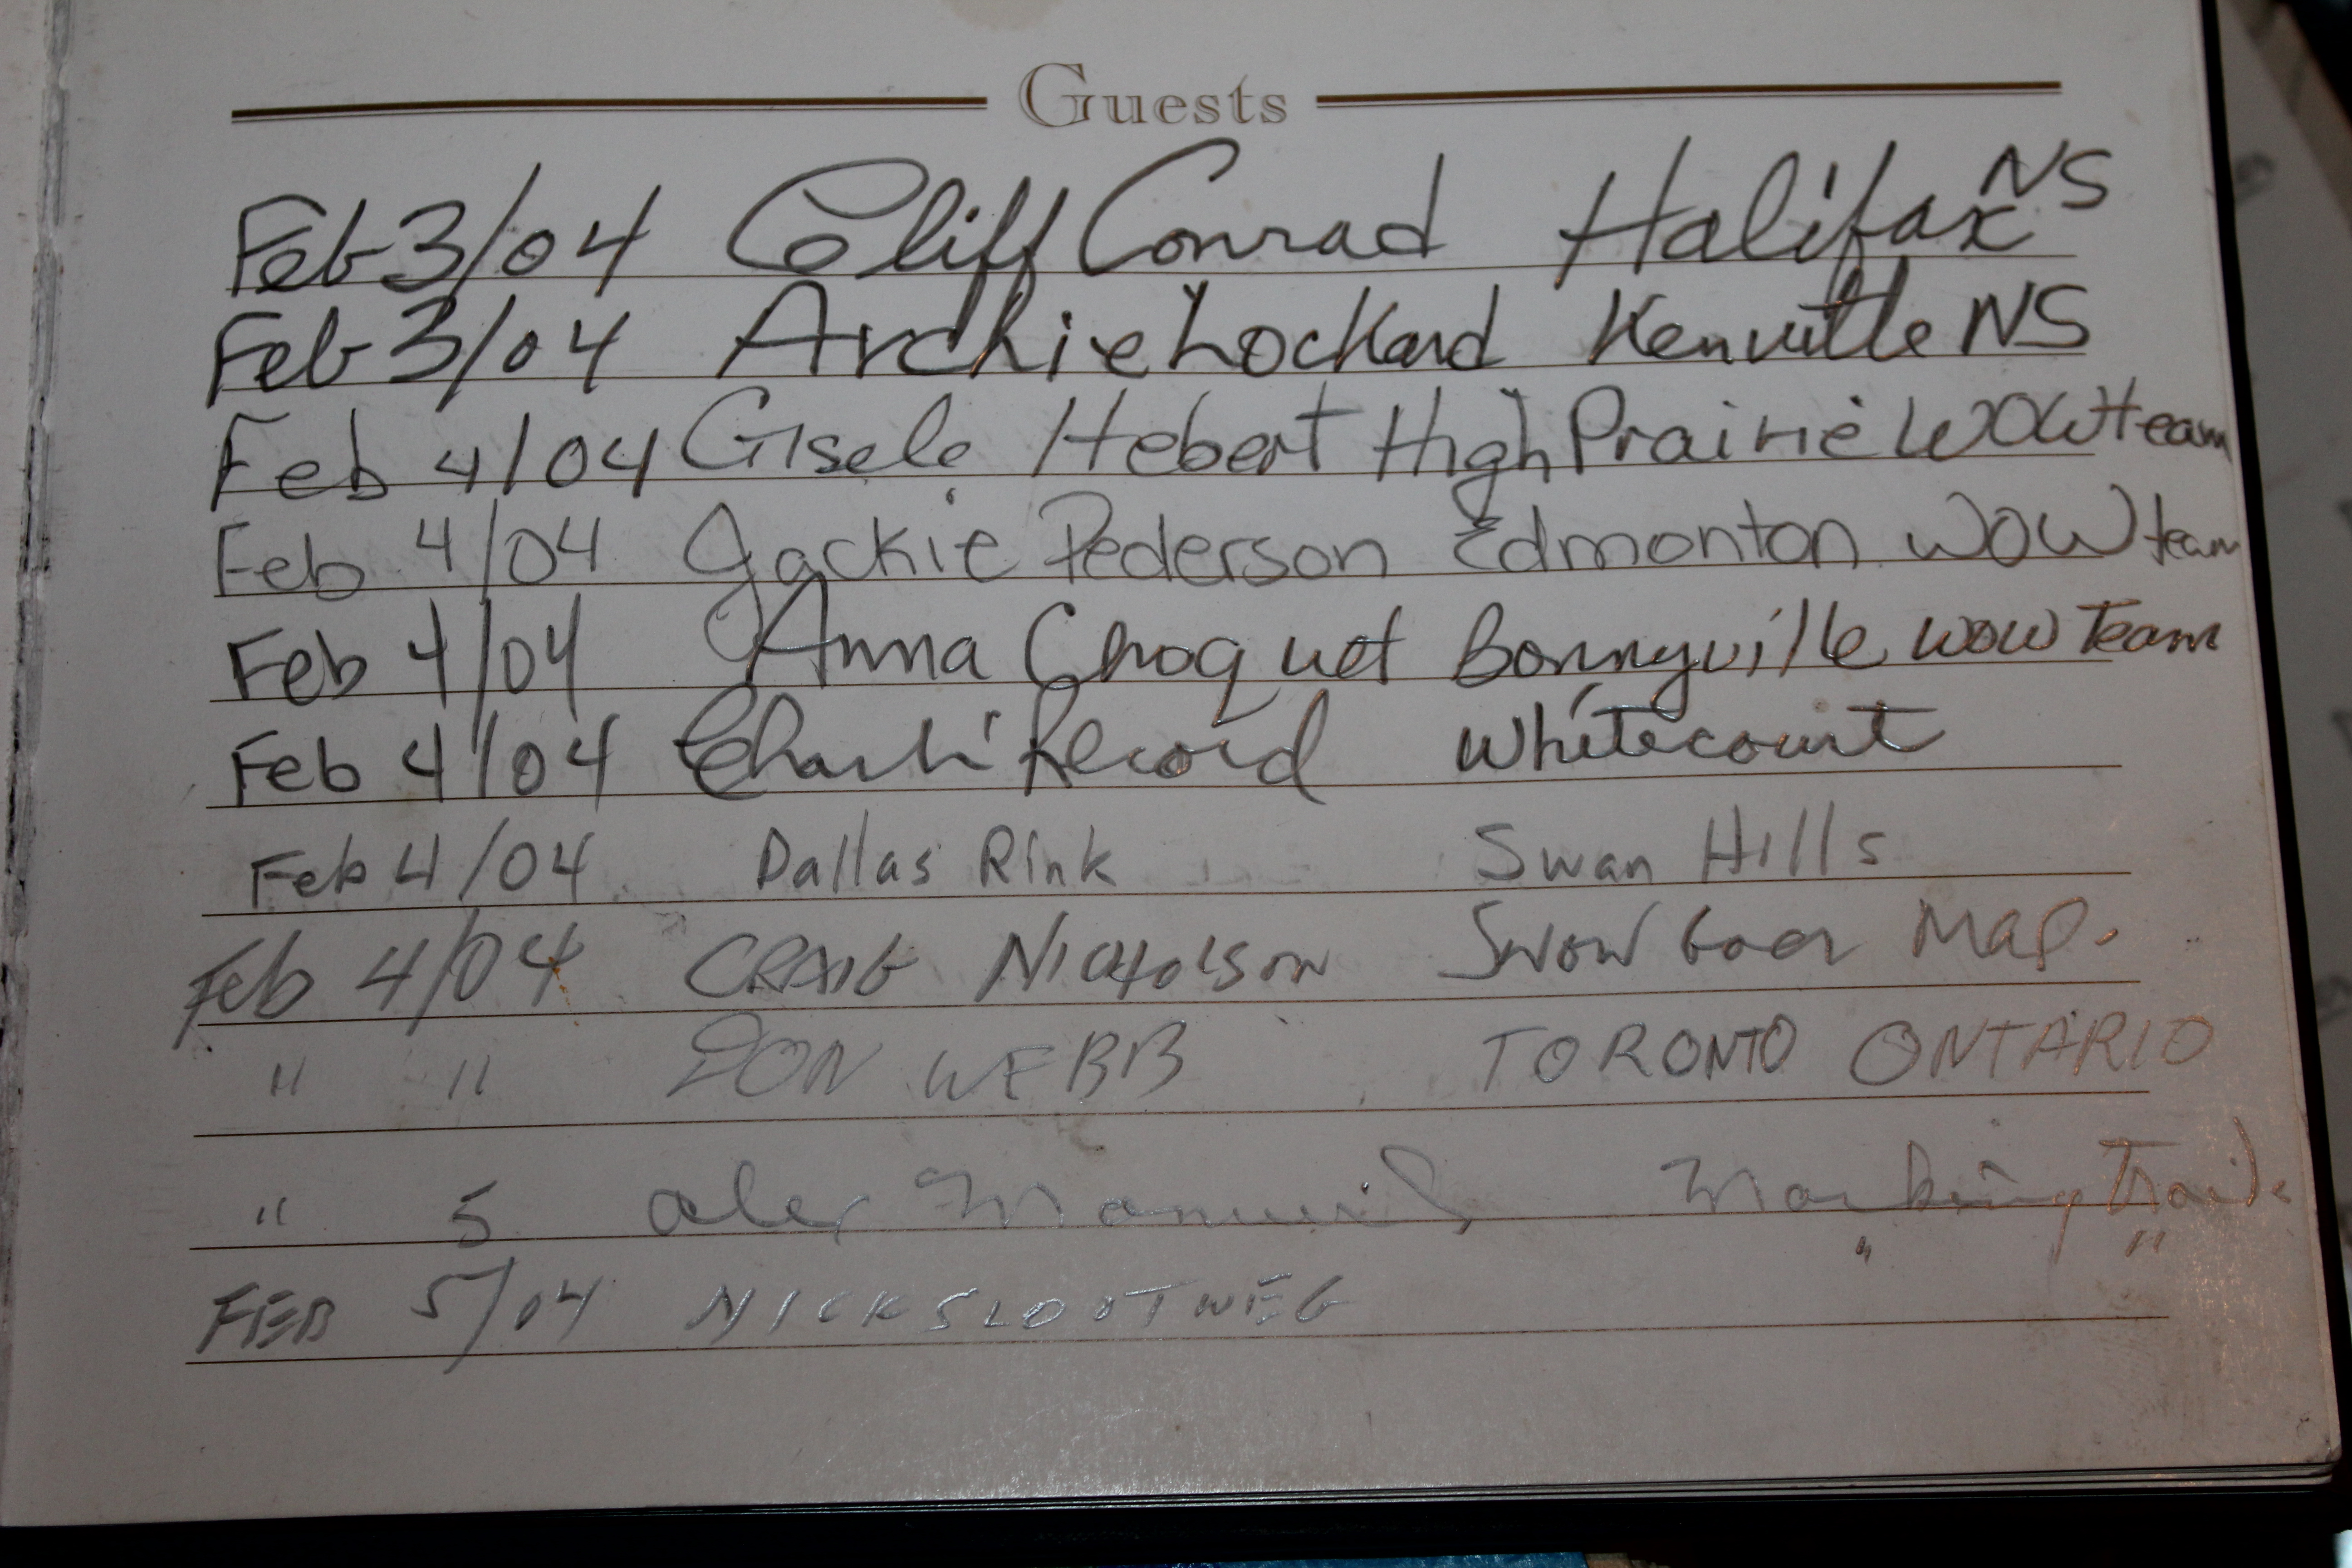 Guests
Feb 3/04 Cliff Conrad Halifax NS
Feb 3/04 Archie Lockard Kenville NS
Feb 4/04 Gisele Hebert High Prairie WOW team
Feb 4/04 Jackie Pederson Edmonton WOW team
Feb 4/04 Anna Choquet Bonnyville WOW Team
Feb 4/04 Charli Record Whitecourt
Feb 4/04 Dallas Rink Swan Hills
Feb 4/04 CRAIG NICHOLSON SNOW Goer MAP.
" " DON WEBB TORONTO ONTARIO
" 5 Marking Trails
FEB 5/04 NICK SLOOTWEG " "